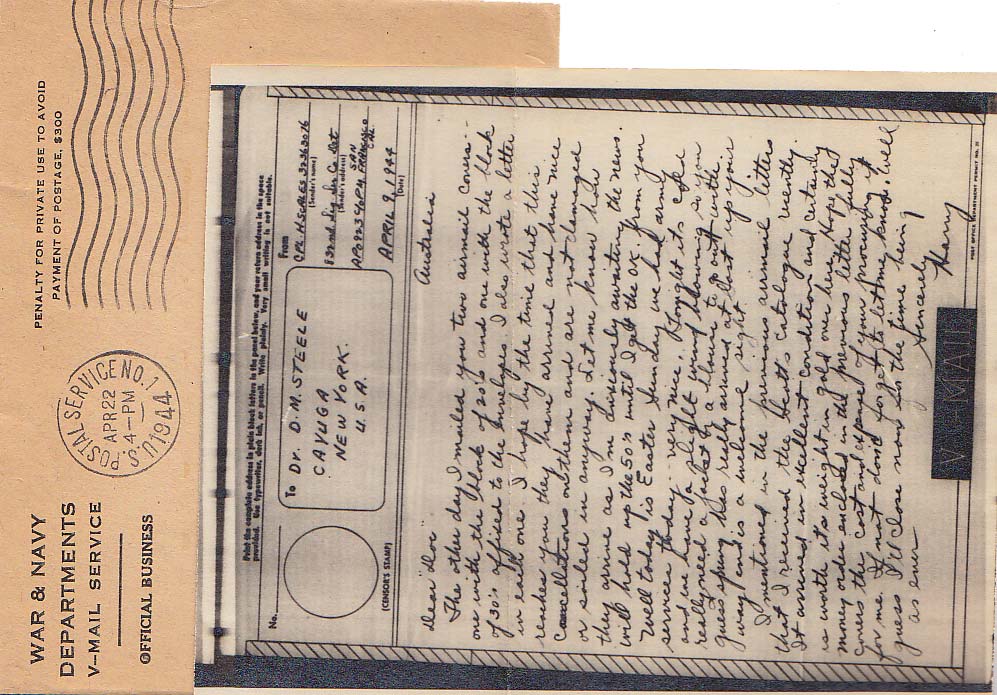 WAR & NAVY
DEPARTMENTS
V-MAIL SERVICE
OFFICIAL BUSINESS
U.S. POSTAL SERVICE NO. 1
APR 22
4-PM
1944
PENALTY FOR PRIVATE USE TO AVOID
PAYMENT OF POSTAGE, $300
Print the complete address in plain block letters in the panel below, and your return address in the space
provided. Use typewriter, dark ink, or pencil. Write plainly. Very small writing is not suitable.
No.
(CENSOR'S STAMP)
To DR. D.M. STEELE
CAYUGA
NEW YORK.
U.S.A.
From
CPL. H. 32363076
(Sender's name)
832nd Sig Sv Co Det
(Sender's address)
APO 923 % PM SAN FRANCISCO
CAL
APRIL 9, 1944
(Date)
Australia
Dear Doc
The other day I mailed you two airmail covers-
one with the block of 20's and one with the block
of 30's affixed to the envelopes. I also wrote a letter
in each one. I hope by the time that this
reaches you they have arrived and have nice
cancellations on them and are not damaged
or soiled in anyway. Let me know how
they arrive as I'm anxiously awaiting the news.
will hold up the 50's until I get the OK from you
Well today is Easter Sunday we had army
services today - very nice. Tonight its cold
and we have a slight wind blowing so you
really need a jacket or a blouse to go out with.
guess spring has really arrived at last up your
way and is a welcome sight
I mentioned in the previous airmail letters
that I received the Scott's Catalogue recently
It arrived in excellent condition and certainly
is worth its weight in gold over here. Hope the
money order enclosed in the previous letter fully
covers the cost and expense of your procuring it
for me. If not dont forget to let me know. Well
guess I'll close now for the time being
as ever
Sincerely
Harry
V-MAIL
POST OFFICE DEPARTMENT PERMIT NO.